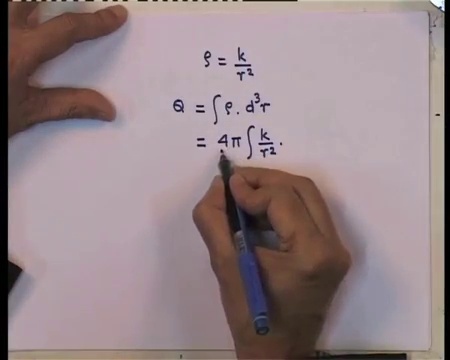 ρ = k/r²
Q = ∫ρ. d³r
= 4π ∫ k/r² .